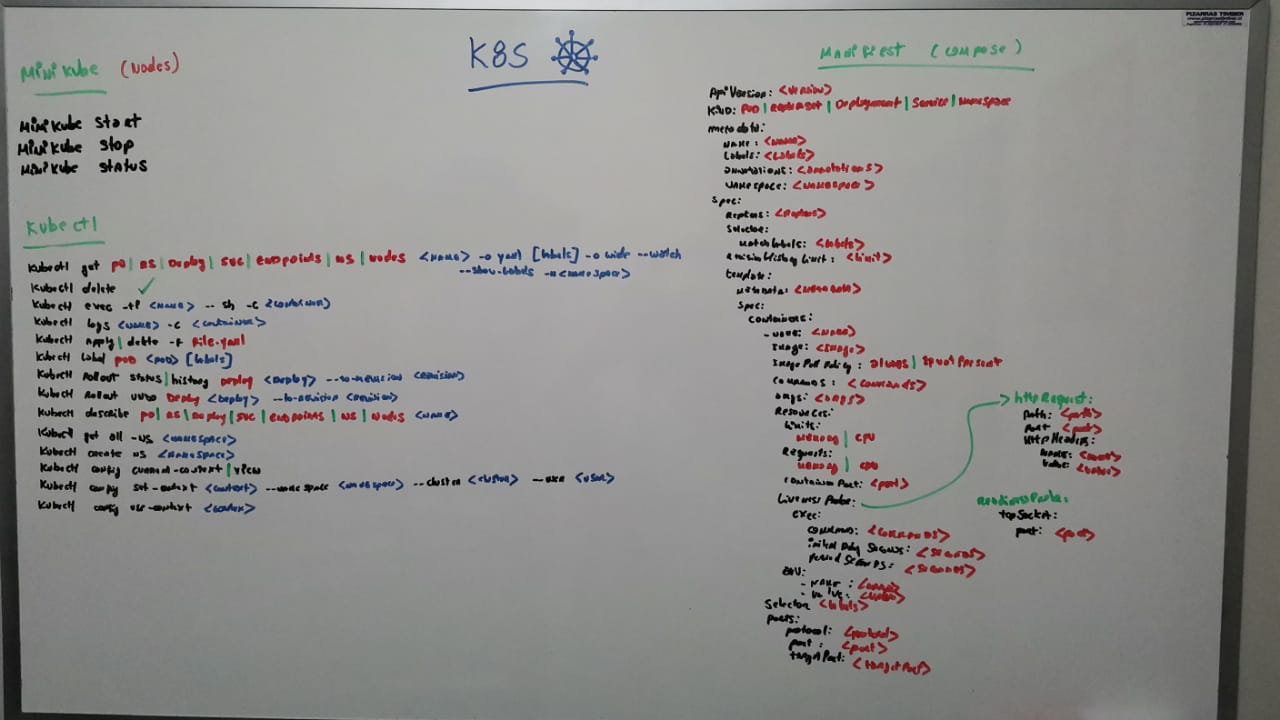 K8S
MiniKube (Nodes)
MiniKube Start
MiniKube Stop
MiniKube Status
Kubectl
Kubectl get po | RS | Deploy | SVC | endpoints | NS | Nodes <NAME> -o yaml [labels] -o wide --watch
--show-labels -n <namespace>
Kubectl delete ✓
Kubectl exec -it <NAME> -- sh -c <container>
Kubectl logs <NAME> -c <container>
Kubectl Apply | delete -f File.yaml
Kubectl Label POD <POD> [labels]
Kubectl Rollout status | history Deploy <Deploy> --to-revision <Revision>
Kubectl Rollout undo Deploy <Deploy> --to-revision <Revision>
Kubectl describe po | RS | Deploy | SVC | endpoints | NS | Nodes <NAME>
Kubectl get all -NS <NameSpace>
Kubectl create NS <NameSpace>
Kubectl config current-context | view
Kubectl config set-context <context> --namespace <namespace> --cluster <cluster> --user <user>
Kubectl config use-context <context>
Manifest (compose)
Api Version: <version>
Kind: POD | Replicaset | Deployment | Service | Namespace
metadata:
Name: <name>
Labels: <Labels>
annotations: <annotations>
namespace: <namespace>
Spec:
Replicas: <Replicas>
Selector:
Match labels: <labels>
Revision History Limit: <limit>
template:
Metadata: <Metadata>
Spec:
Containers:
- Name: <Name>
Image: <Image>
Image Pull Policy: always | IfnotPresent
Commands: <Commands>
args: <args>
Resources:
limits:
Memory | CPU
Requests:
Memory | CPU
Container Port: <port>
Liveness Probe:
exec:
command: <commands>
initial Delay Seconds: <seconds>
period Seconds: <seconds>
ENV:
- Name: <name>
- Value: <value>
Selector <labels>
ports:
protocol: <protocol>
port: <port>
targetPort: <targetPort>
httpRequest:
path: <path>
port <port>
Http Headers:
Name: <name>
Value: <value>
ReadinessProbe:
tcpSocket:
port: <port>
PIZARRAS TIMBER